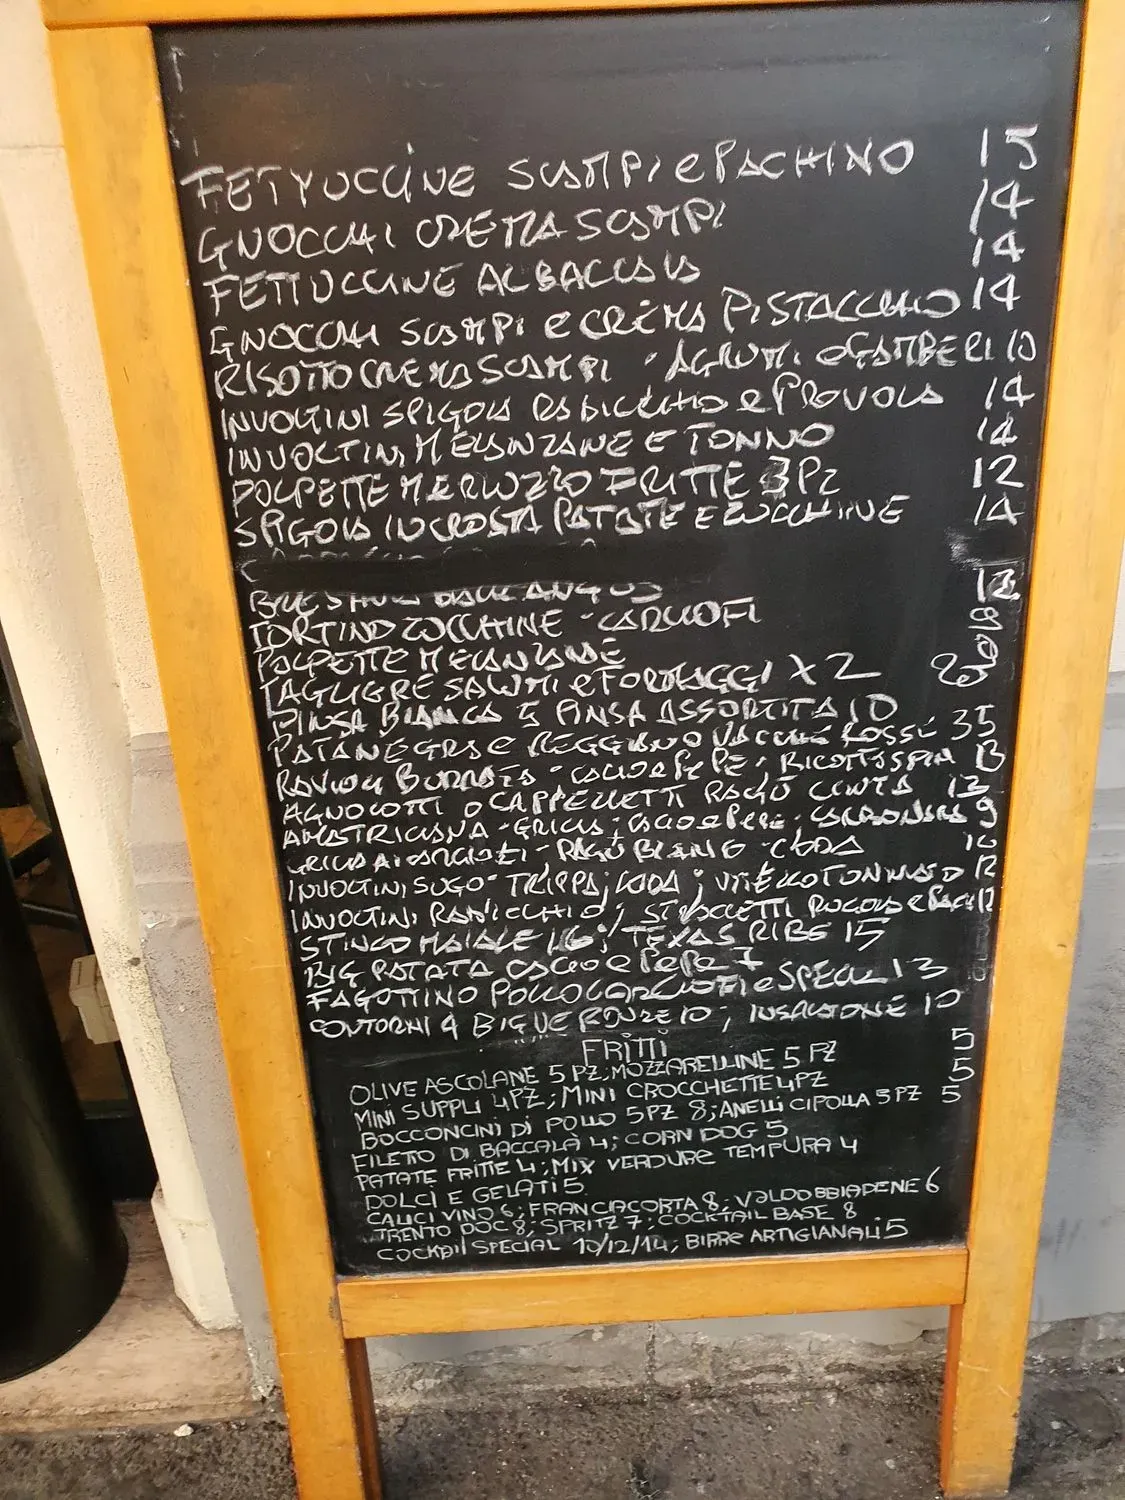 FETTUCCINE SCAMPI e PACHINO 15
GNOCCHI CREMA SCAMPI 14
FETTUCCINE AL BACCALà 14
GNOCCHI SCAMPI e CREMA PISTACCHIO 14
RISOTTO CREMA SCAMPI - AGRUMI e GAMBERI
INVOLTINI SPIGOLA RADICCHIO e PROVOLA 14
INVOLTINI MELANZANE E TONNO 14
POLPETTE MERLUZZO FRITTE 3PZ 12
SPIGOLA IN CROSTA PATATE E ZUCCHINE 14
TORTINO ZUCCHINE - CARCIOFI
POLPETTE MELANZANE
TAGLIERE SALUMI e FORMAGGI X 2
PINSA BIANCA 5 PINSA ASSORTITA 10
PATANEGRA e REGGIANO VACCHE ROSSE 35
RAVIOLI BURRATA - CACIO e PEPE - RICOTTA SPIN
AGNOLOTTI O CAPPELLETTI RAGÙ CINTA 13
AMATRICIANA - GRICIA ; CACIO e PEPE - CARBONARA 9
GRICIA AI CARCIOFI - RAGÙ BIANCO - CODA 10
INVOLTINI SUGO - TRIPPA ; CODA ; VITELLO TONNATO 12
INVOLTINI RADICCHIO ; STRACCETTI RUCOLA e PACH 12
STINCO MAIALE 16 ; TEXAS RIBS 15
BIG PATATA CACIO e PEPE 7
FAGOTTINO POLLO CARCIOFI e SPECK 13
CONTORNI 4 BIG VERDURE 10 ; INSALATONE 10
FRITTI
OLIVE ASCOLANE 5 PZ; MOZZARELLINE 5 PZ 5
MINI SUPPLI 4PZ; MINI CROCCHETTE 4PZ 5
BOCCONCINI DI POLLO 5PZ 8; ANELLI CIPOLLA 5PZ 5
FILETTO DI BACCALÀ 4; CORN DOG 5
PATATE FRITTE 4; MIX VERDURE TEMPURA 4
DOLCI E GELATI 5
CALICI VINO 6; FRANCIACORTA 8; VALDOBBIADENE 6
TRENTO DOC 8; SPRITZ 7; COCKTAIL BASE 8
COCKTAIL SPECIAL 10/12/14; BIRRE ARTIGIANALI 5